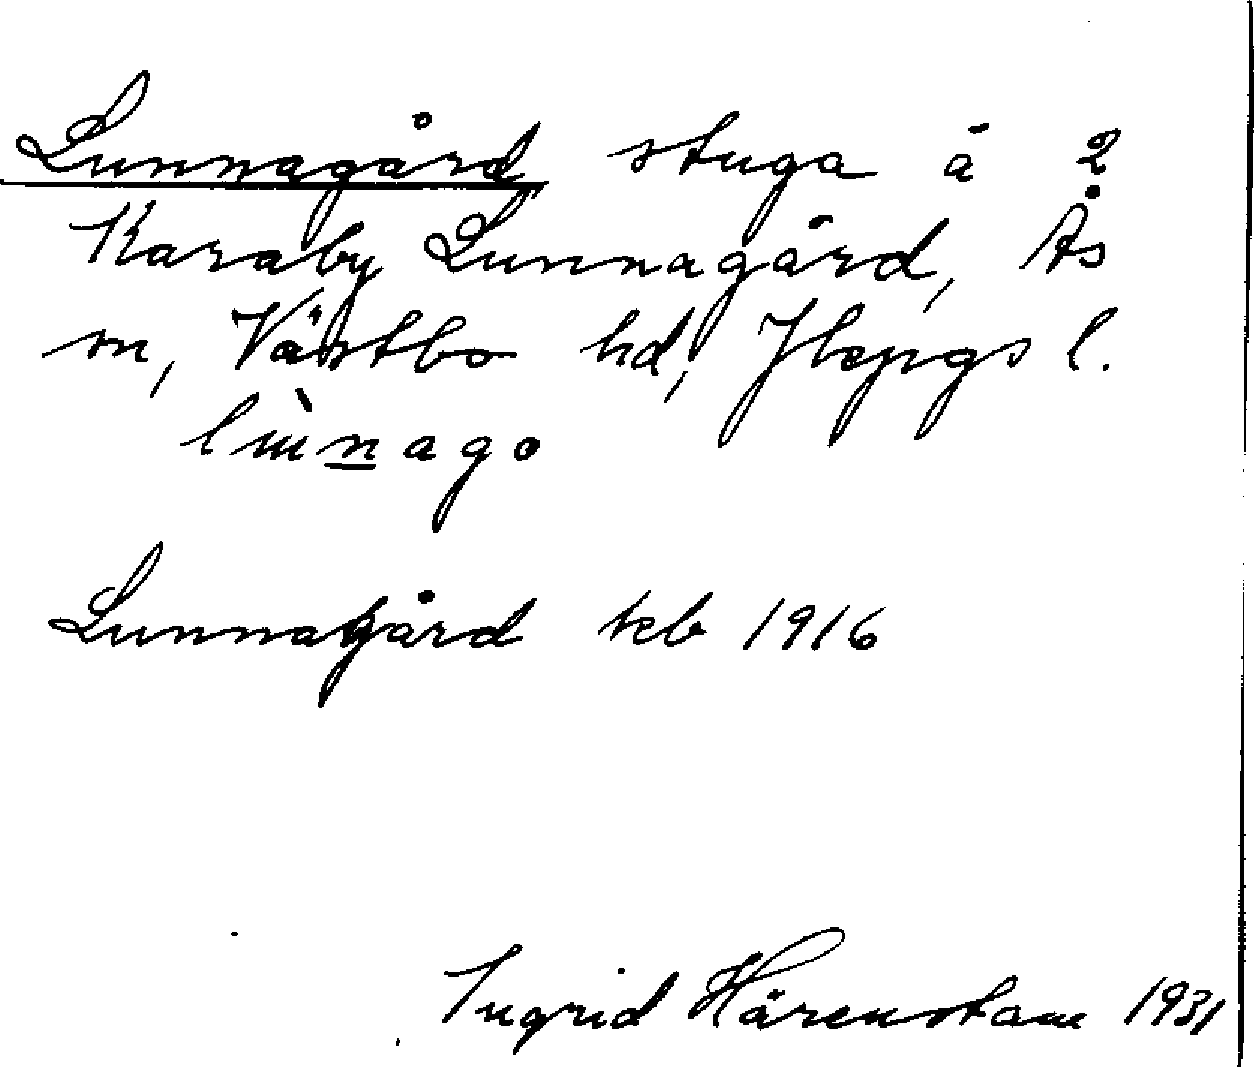 Lunnagård stuga å 2
Karaby Lunnagård, Ås
sn, Västbo hd, Jkpgs l.
lùnago
Lunnagård kb 1916
Ingrid Härenstam 1931